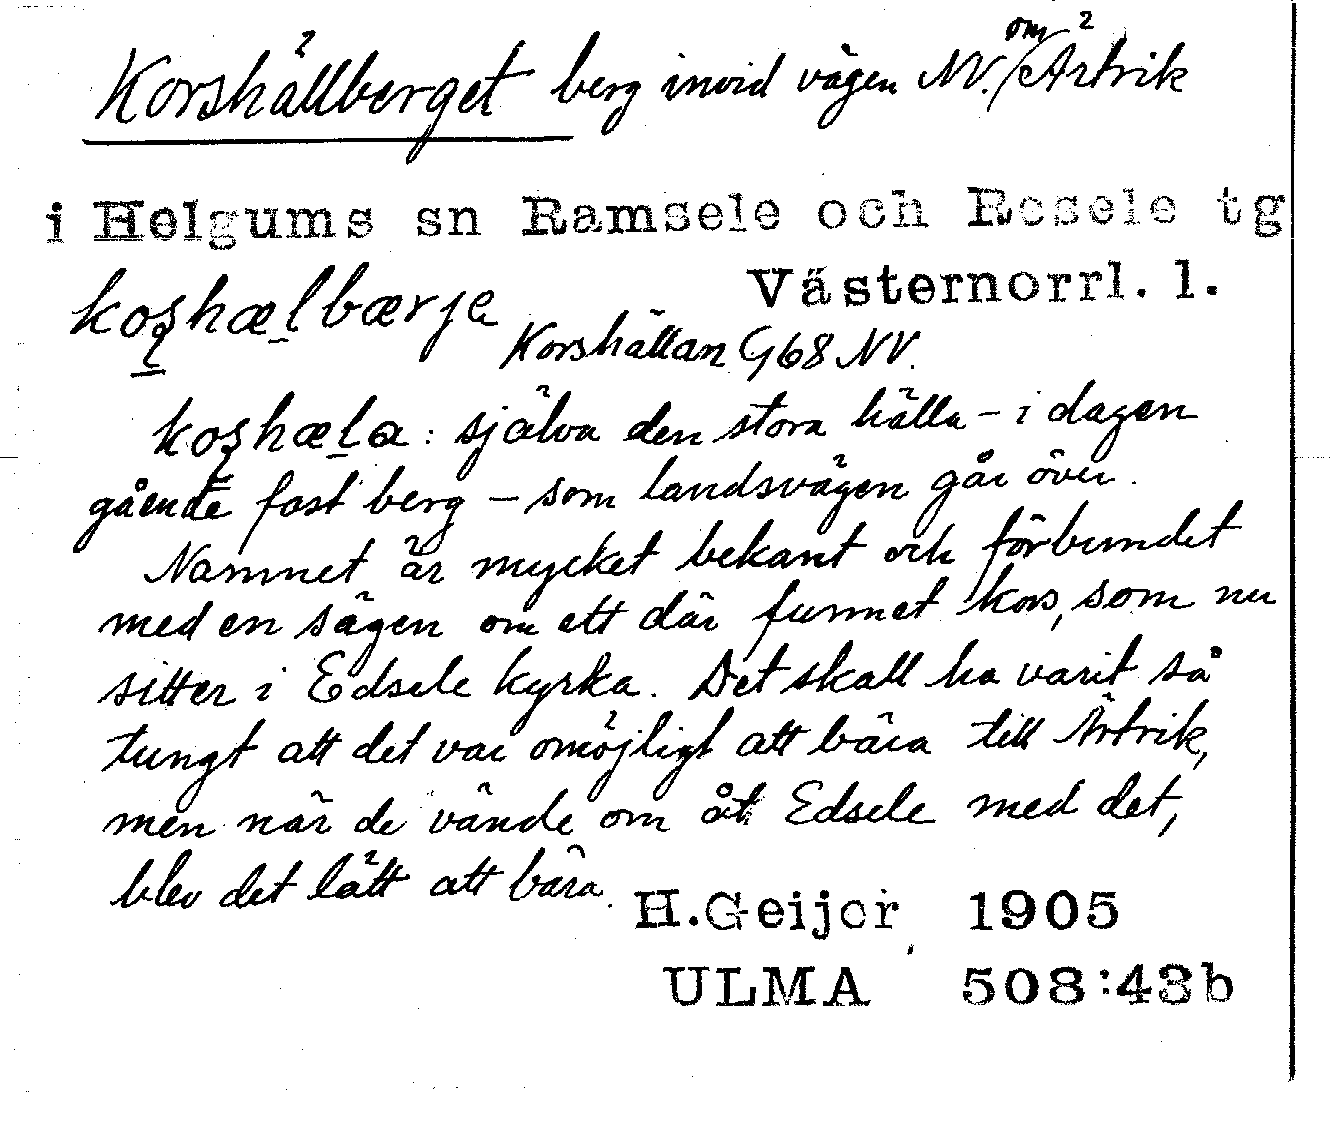 Korshällberget berg invid vägen NV. om Ärtrik
i Helgums sn Ramsele och Resele tg
Västernorrl. l.
koʂhælbærje
Korshällan G68 NV.
koʂhæla: själva den stora hälla – i dagen
gående fast berg – som landsvägen går över.
Namnet är mycket bekant och förbundet
med en sägen om ett där funnet kors, som nu
sitter i Edsele kyrka. Det skall ha varit så
tungt att det var omöjligt att bära till Ärtrik,
men när de vände om åt Edsele med det,
blev det lätt att bära.
H.Geijer 1905
ULMA 508:43b